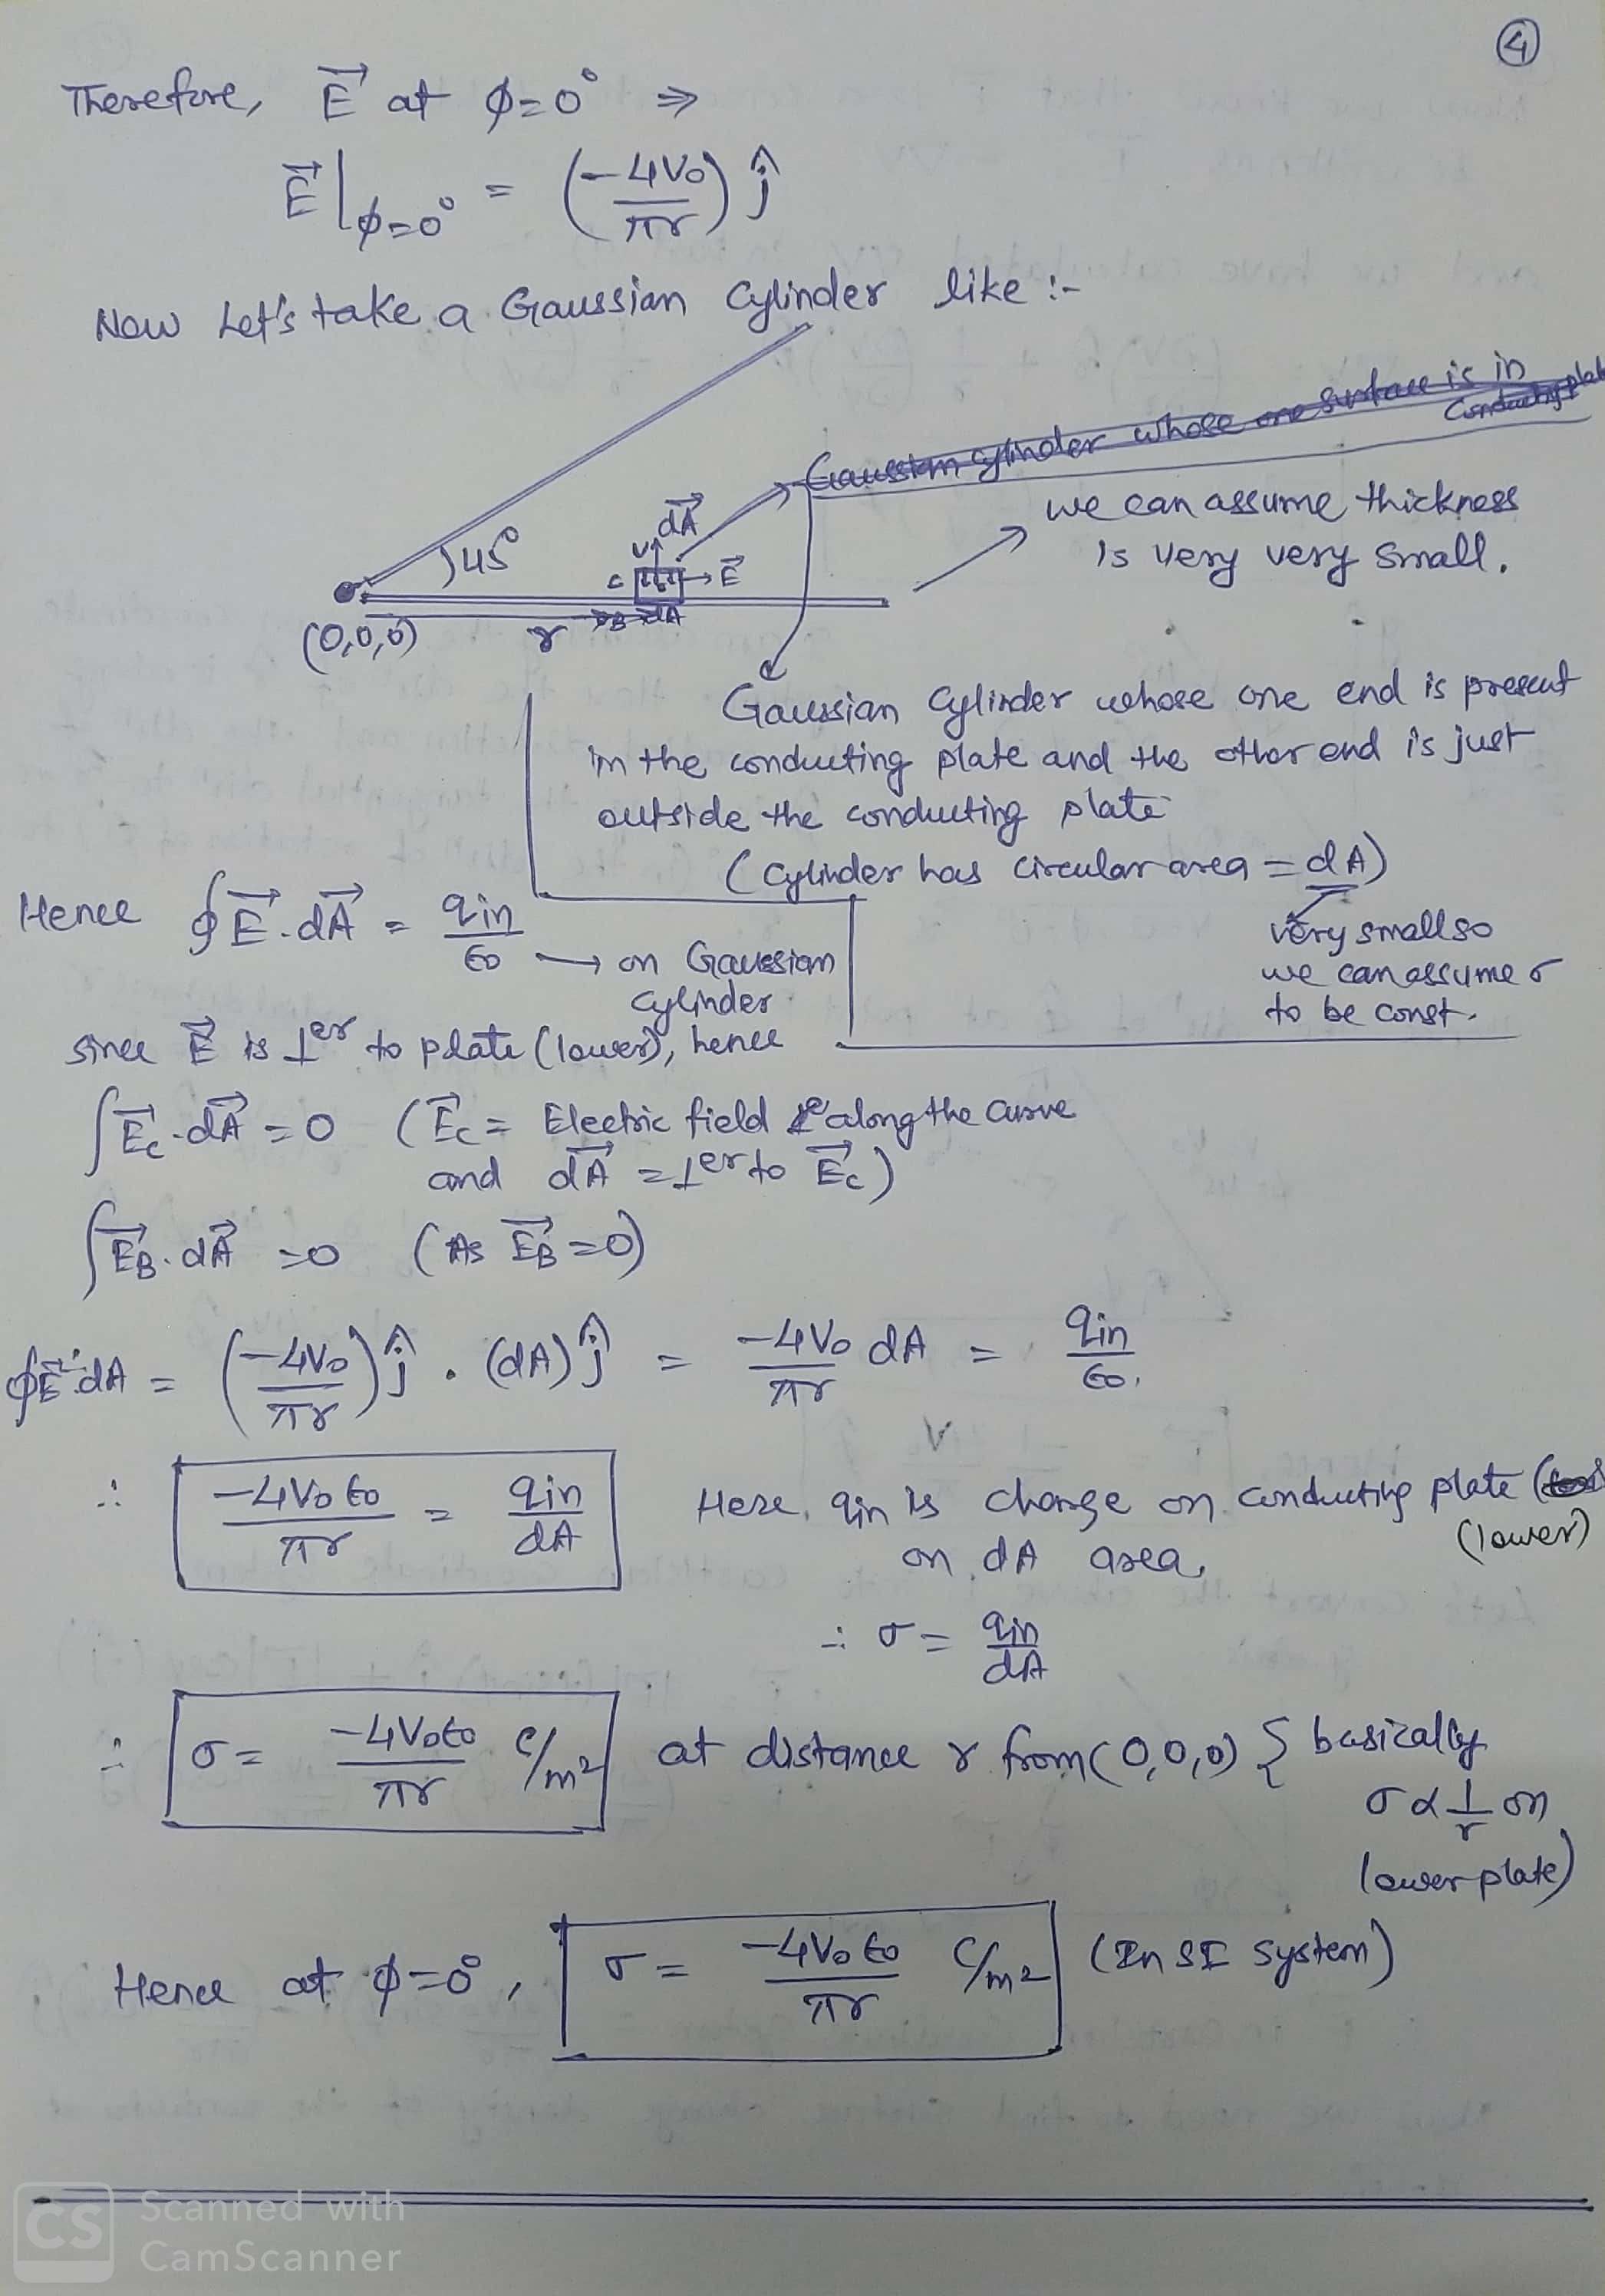 ④
Therefore, E⃗ at φ=0° ⇒
E⃗|φ=0° = (-4V₀/πr) ĵ
Now Let's take a Gaussian Cylinder like :-
Gaussian cylinder whose one surface is in
Conducting plate
we can assume thickness
is very very small.
45°
dA⃗
C
E⃗
(0,0,0)
r
B
dA
Gaussian Cylinder whose one end is present
in the conducting plate and the other end is just
outside the conducting plate
(Cylinder has circular area = dA)
very small so
we can assume σ
to be const.
Hence ∮E⃗.dA⃗ = qin/ε₀ → on Gaussian
cylinder
since E⃗ is ⊥er to plate (lower), hence
∫E⃗c.dA⃗ = 0 (E⃗c = Electric field along the curve
and dA⃗ = ⊥er to E⃗c)
∫E⃗B.dA⃗ = 0 (As E⃗B = 0)
∮E⃗.dA = (-4V₀/πr) ĵ . (dA) ĵ = -4V₀/πr dA = qin/ε₀.
∴ -4V₀ε₀/πr = qin/dA Here, qin is charge on conducting plate
(lower)
on dA area,
∴ σ = qin/dA
∴ σ = -4V₀ε₀/πr C/m² at distance r from (0,0,0) { basically
σ α 1/r on
lower plate)
Hence at φ=0°, σ = -4V₀ε₀/πr C/m² (In SI system)
CS Scanned with
CamScanner